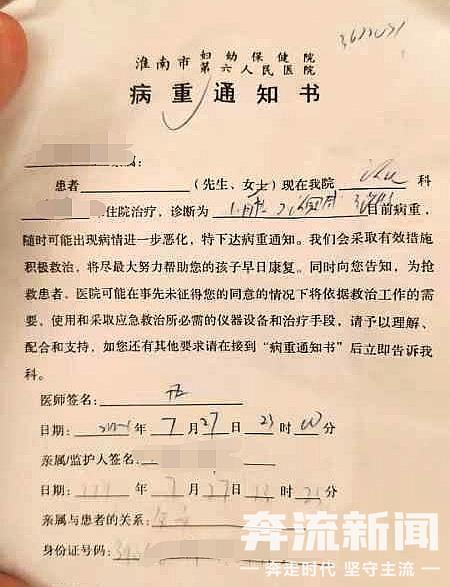 淮南市 妇幼保健院
第六人民医院
病重通知书
患者 (先生、女士)现在我院 科
住院治疗，诊断为 目前病重，
随时可能出现病情进一步恶化，特下达病重通知。我们会采取有效措施
积极救治，将尽最大努力帮助您的孩子早日康复。同时向您告知，为抢
救患者，医院可能在事先未征得您的同意的情况下将依据救治工作的需
要、使用和采取应急救治所必需的仪器设备和治疗手段，请予以理解、
配合和支持，如您还有其他要求请在接到“病重通知书”后立即告诉我
科。
医师签名：
日期： 年 7 月 27 日 23 时 00 分
亲属/监护人签名：
日期： 年 7 月 27 日 时 分
亲属与患者的关系：
身份证号码：
奔流新闻
奔走时代 坚守主流